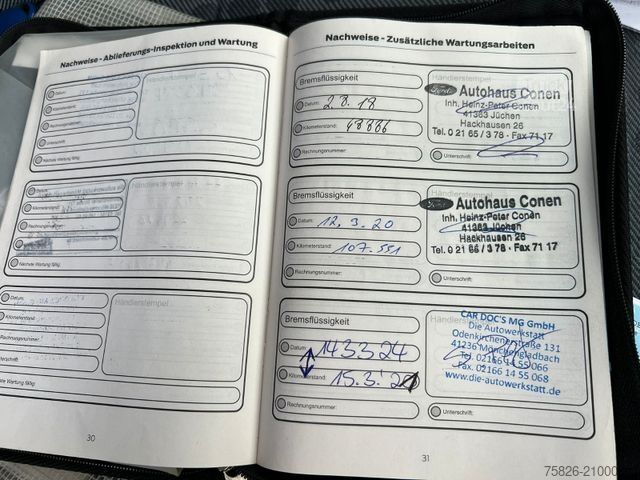 Nachweise - Ablieferungs-Inspektion und Wartung
Datum:
Händlerstempel
Kilometerstand:
Rechnungsnummer:
Unterschrift:
Nächste Wartung fällig:
Datum:
Händlerstempel
Kilometerstand:
Rechnungsnummer:
Nächste Wartung fällig:
Datum:
Händlerstempel
Kilometerstand:
Rechnungsnummer:
Unterschrift:
Nächste Wartung fällig:
30
Nachweise - Zusätzliche Wartungsarbeiten
Bremsflüssigkeit
Datum: 2.8.18
Kilometerstand: 48886
Rechnungsnummer:
Händlerstempel
Ford Autohaus Conen
Inh. Heinz-Peter Conen
41363 Jüchen
Hackhausen 26
Tel. 0 21 65 / 3 78 · Fax 71 17
Unterschrift:
Bremsflüssigkeit
Datum: 12.3.20
Kilometerstand: 107.551
Rechnungsnummer:
Ford Autohaus Conen
Inh. Heinz-Peter Conen
41363 Jüchen
Hackhausen 26
Tel. 0 21 65 / 3 78 · Fax 71 17
Unterschrift:
Bremsflüssigkeit
Datum: 143324
Kilometerstand: 15.3.
Rechnungsnummer:
CAR DOC'S MG GmbH
Die Autowerkstatt
Odenkirchener Straße 131
41236 Mönchengladbach
Tel. 02166 14 55 066
Fax. 02166 14 55 068
www.die-autowerkstatt.de
Unterschrift:
31
75826-21000